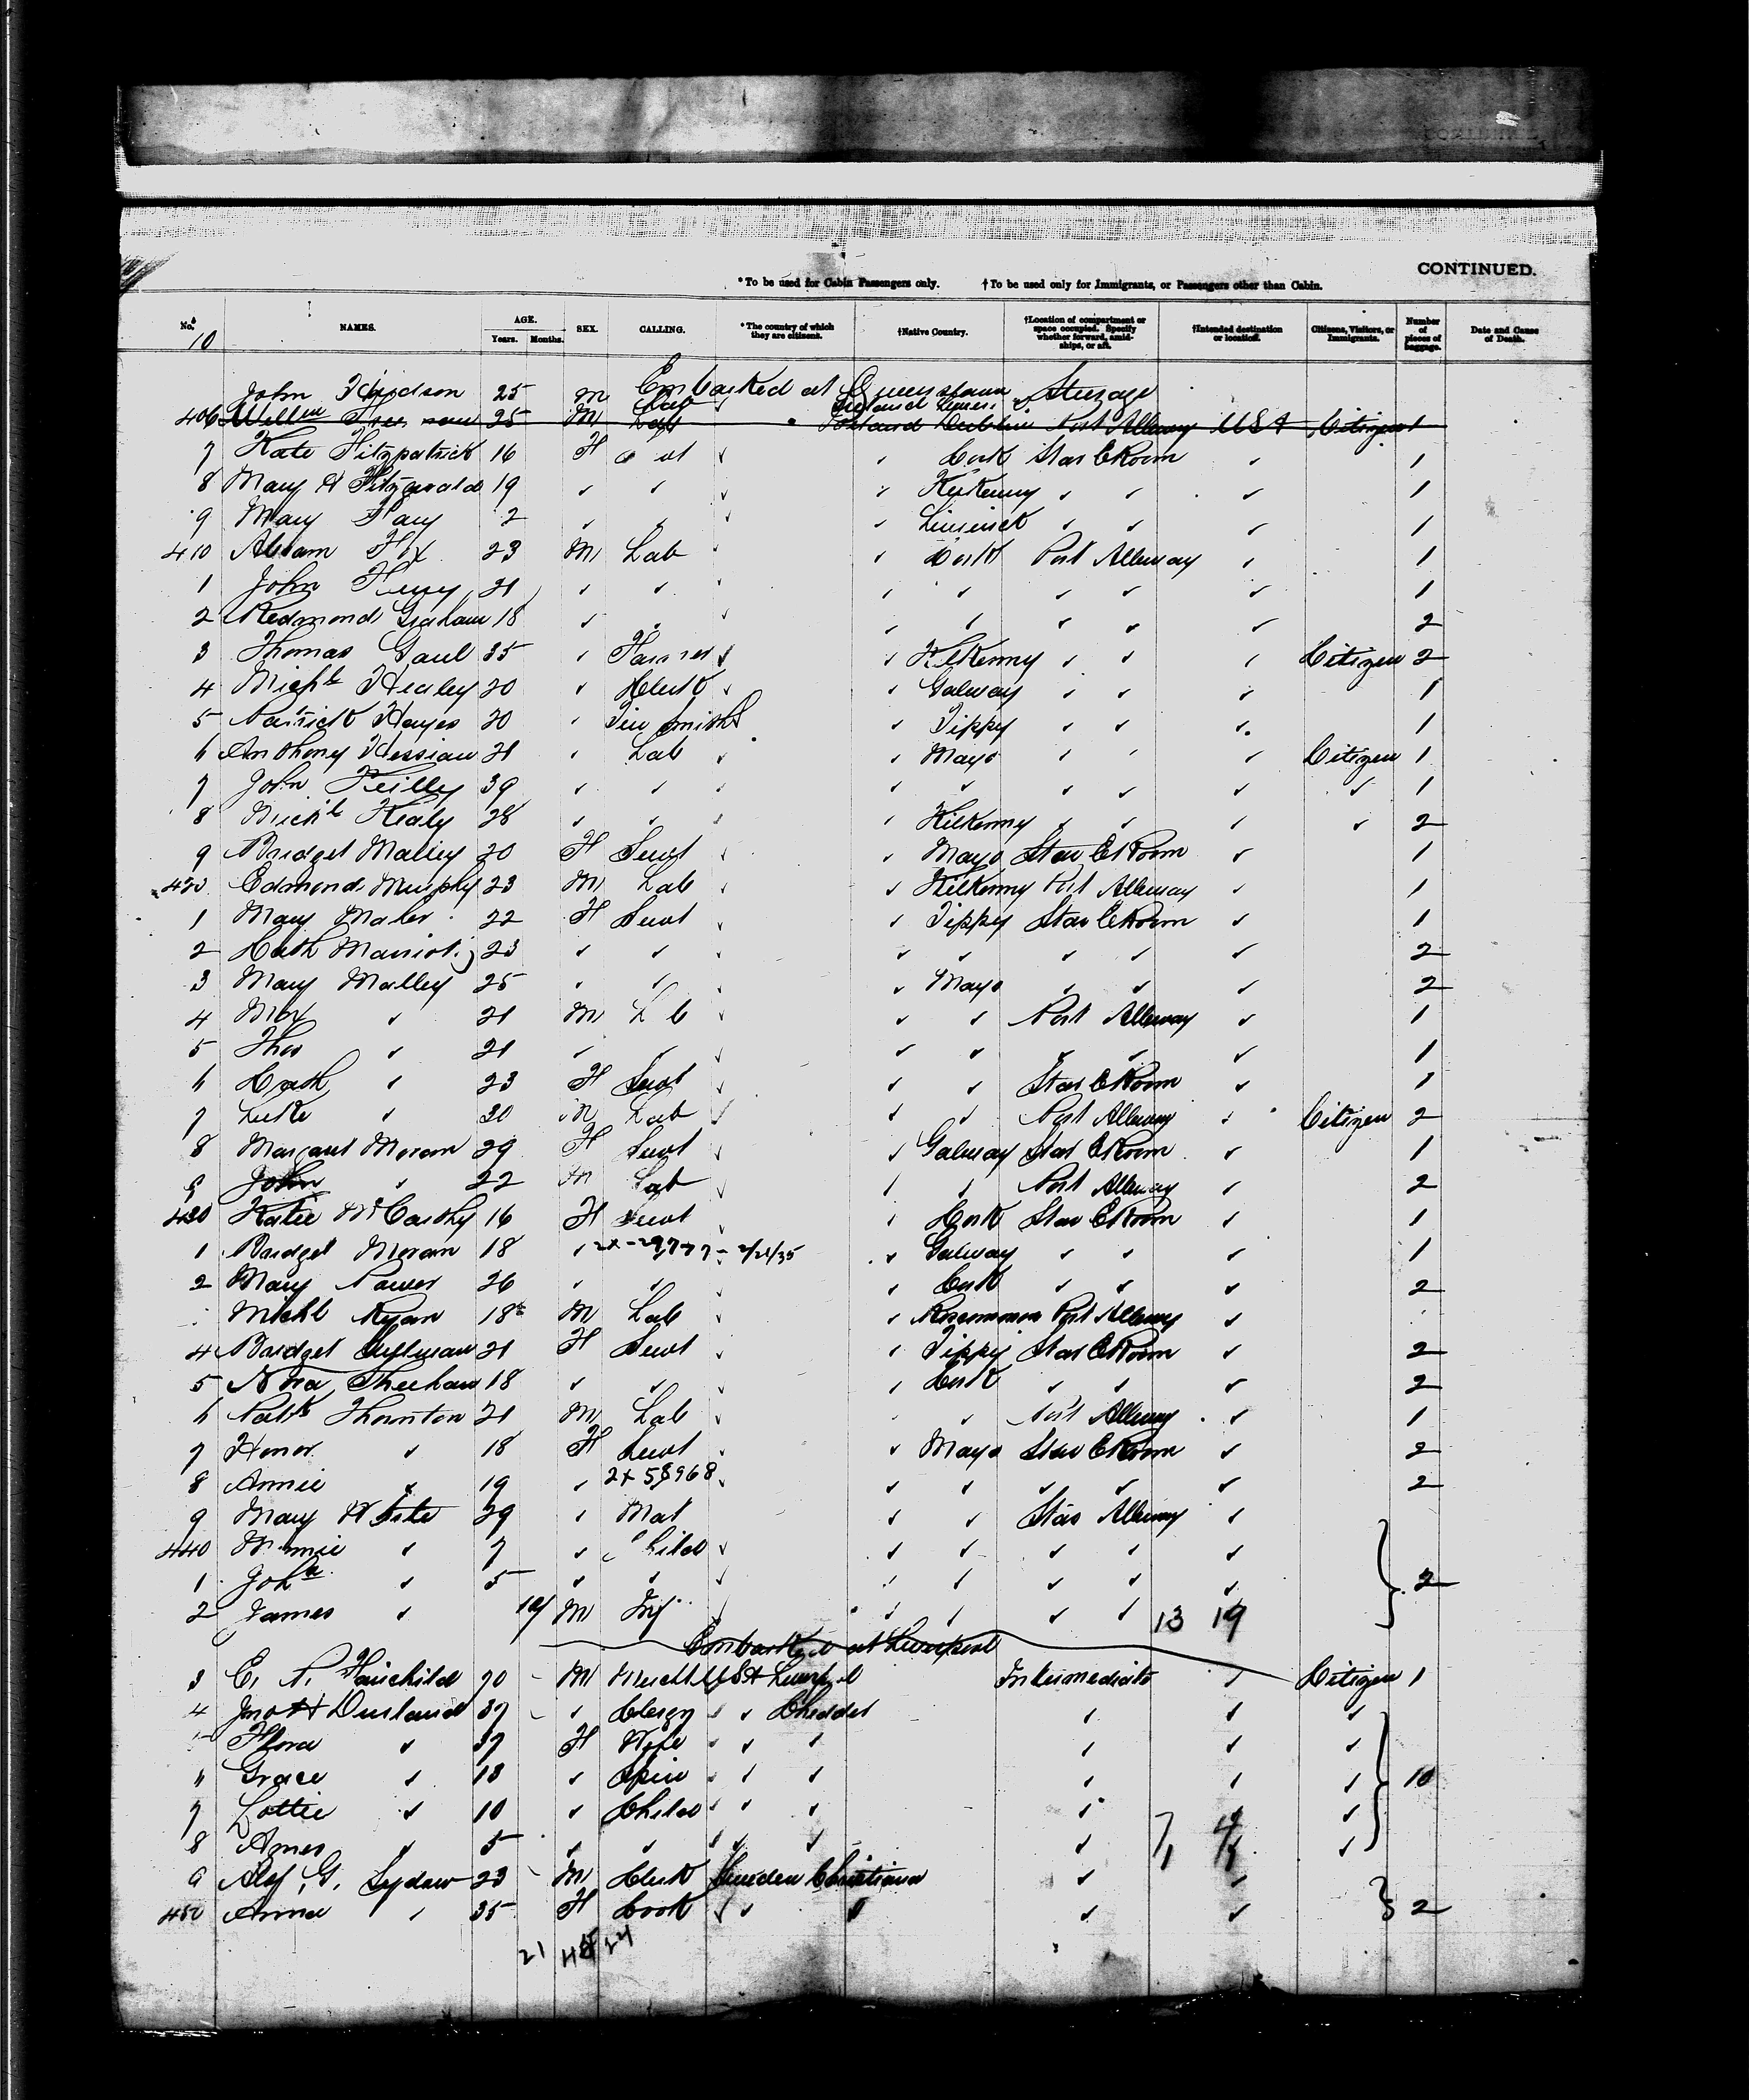 CONTINUED.
* To be used for Cabin Passengers only. † To be used only for Immigrants, or Passengers other than Cabin.
No. NAMES. AGE. Years. Months. SEX. CALLING. * The country of which they are citizens. † Native Country. † Location of compartment or space occupied. Specify whether forward, amidships, or aft. † Intended destination or location. Citizens, Visitors, or Immigrants. Number of pieces of baggage. Date and Cause of Death.
10
Embarked at Queenstown Steerage
John 25 m Lab ✓
406 25 M Lab Dublin Port Alleway USA Citizen 1
7 Kate Fitzpatrick 16 F ✓ ✓ Cork Star E Room ✓ 1
8 Mary Fitzgerald 19 ✓ ✓ ✓ ✓ Kilkenny ✓ ✓ ✓ 1
9 Mary 2 ✓ ✓ ✓ ✓ Limerick ✓ ✓ ✓ 1
410 Abram Fox 23 M Lab ✓ ✓ Cork Port Alleway ✓ 1
1 John 21 ✓ ✓ ✓ ✓ ✓ ✓ ✓ ✓ 1
2 Redmond Graham 18 ✓ ✓ ✓ ✓ ✓ ✓ ✓ ✓ 2
3 Thomas Gaul 35 ✓ Farmer ✓ ✓ Kilkenny ✓ ✓ ✓ Citizen 2
4 Michl Healey 20 ✓ Clerk ✓ ✓ Galway ✓ ✓ ✓ 1
5 Patrick Hayes 20 ✓ Tin Smith ✓ Tippy ✓ ✓ ✓ 1
6 Anthony Hession 21 ✓ Lab ✓ ✓ Mayo ✓ ✓ ✓ Citizen 1
7 John Reilly 39 ✓ ✓ ✓ ✓ ✓ ✓ ✓ ✓ ✓ 1
8 Michl Healy 28 ✓ ✓ ✓ ✓ Kilkenny ✓ ✓ ✓ ✓ 2
9 Bridget Malley 20 F Servt ✓ ✓ Mayo Star E Room ✓ 1
420 Edmond Murphy 23 M Lab ✓ ✓ Kilkenny Port Alleway ✓ 1
1 Mary Maher 22 F Servt ✓ ✓ Tippy Star E Room ✓ 1
2 Cath 23 ✓ ✓ ✓ ✓ ✓ ✓ ✓ ✓ 2
3 Mary Malley 25 ✓ ✓ ✓ ✓ Mayo ✓ ✓ ✓ 2
4 ✓ 21 M Lab ✓ ✓ ✓ Port Alleway ✓ 1
5 Thos ✓ 21 ✓ ✓ ✓ ✓ ✓ ✓ ✓ ✓ 1
6 Cath ✓ 23 F Servt ✓ ✓ ✓ Star E Room ✓ 1
7 Luke ✓ 30 M Lab ✓ ✓ ✓ Port Alleway ✓ Citizen 2
8 Margaret Moran 29 F Servt ✓ ✓ Galway Star E Room ✓ 1
9 John ✓ 22 M Lab ✓ ✓ ✓ Port Alleway ✓ 2
430 Katie McCarthy 16 F Servt ✓ ✓ Cork Star E Room ✓ 1
1 Bridget Moran 18 ✓ 2x-29777-2/21/35 ✓ Galway ✓ ✓ ✓ 1
2 Mary Power 26 ✓ ✓ ✓ ✓ Cork ✓ ✓ ✓ 2
Michl Ryan 18 M Lab ✓ ✓ Roscommon Port Alleway ✓
4 Bridget 21 F Servt ✓ ✓ Tippy Star E Room ✓ 2
5 Nora Sheehan 18 ✓ ✓ ✓ ✓ Cork ✓ ✓ ✓ 2
6 Patk Thornton 21 M Lab ✓ ✓ ✓ Port Alleway ✓ 1
7 Honor ✓ 18 F Servt ✓ ✓ Mayo Star E Room ✓ 2
8 Annie ✓ 19 ✓ 2x 58968 ✓ ✓ ✓ ✓ ✓ ✓ 2
9 Mary White 29 ✓ Mat ✓ ✓ Star Alleway ✓
440 Minnie ✓ 7 ✓ Child ✓ ✓ ✓ ✓ ✓ ✓
1 John ✓ 5 ✓ ✓ ✓ ✓ ✓ ✓ ✓ ✓ 2
2 James ✓ M Inf ✓ ✓ ✓ ✓ ✓ 13 19
Embarked at Liverpool
3 E. N. Fairchild 70 M Mercht USA Liverpool Intermediate ✓ Citizen 1
4 Jno H Durland 37 ✓ Clergy ✓ ✓ ✓ ✓ ✓
5 Flora ✓ 37 F Wife ✓ ✓ ✓ ✓ ✓ ✓
6 Grace ✓ 13 ✓ Spin ✓ ✓ ✓ ✓ ✓ ✓ 10
7 Lottie ✓ 10 ✓ Child ✓ ✓ ✓ ✓ ✓ ✓
8 Ames ✓ 5 ✓ ✓ ✓ ✓ ✓ ✓ ✓ ✓
9 G. Lydow 23 M Clerk Sweden Christiana ✓ ✓
450 Anna ✓ 35 F Cook ✓ ✓ ✓ ✓ ✓ 2
21 24